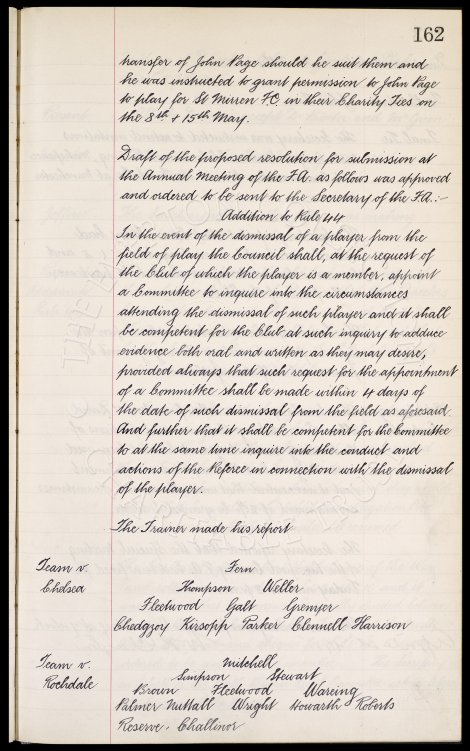 162
transfer of John Page should he suit them and
he was instructed to grant permission to John Page
to play for St Mirren F.C. in their Charity Ties on
the 8th + 15th May.
Draft of the proposed resolution for submission at
the Annual Meeting of the F.A. as follows was approved
and ordered to be sent to the Secretary of the F.A. :-
Addition to Rule 44
In the event of the dismissal of a player from the
field of play the Council shall, at the request of
the Club of which the player is a member, appoint
a Committee to inquire into the circumstances
attending the dismissal of such player and it shall
be competent for the Club at such inquiry to adduce
evidence both oral and written as they may desire,
provided always that such request for the appointment
of a Committee shall be made within 4 days of
the date of such dismissal from the field as aforesaid.
And further that it shall be competent for the Committee
to at the same time inquire into the conduct and
actions of the Referee in connection with the dismissal
of the player.
The Trainer made his report
Team v. Fern
Chelsea Thompson Weller
Fleetwood Galt Grenyer
Chedgzoy Kirsopp Parker Clennell Harrison
Team v. Mitchell
Rochdale Simpson Stewart
Brown Fleetwood Wareing
Palmer Nuttall Wright Howarth Roberts
Reserve. Challinor